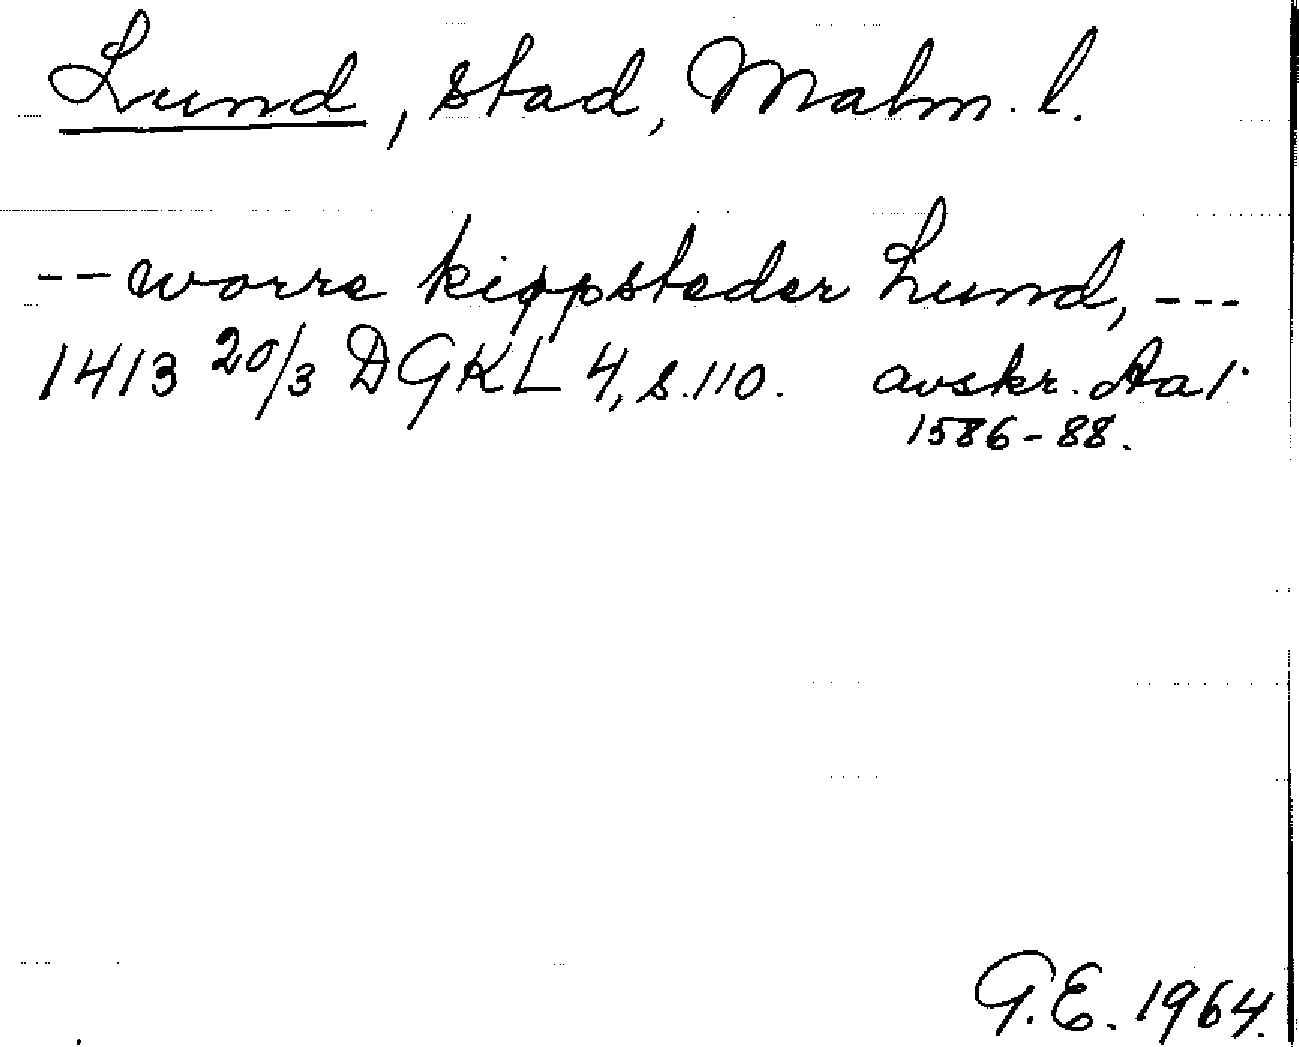 Lund, stad, Malm. l.
-- worre kiøpsteder Lund, ---
1413 20/3 DGKL 4, s. 110. avskr. Aa 1
1586-88.
G.E. 1964.